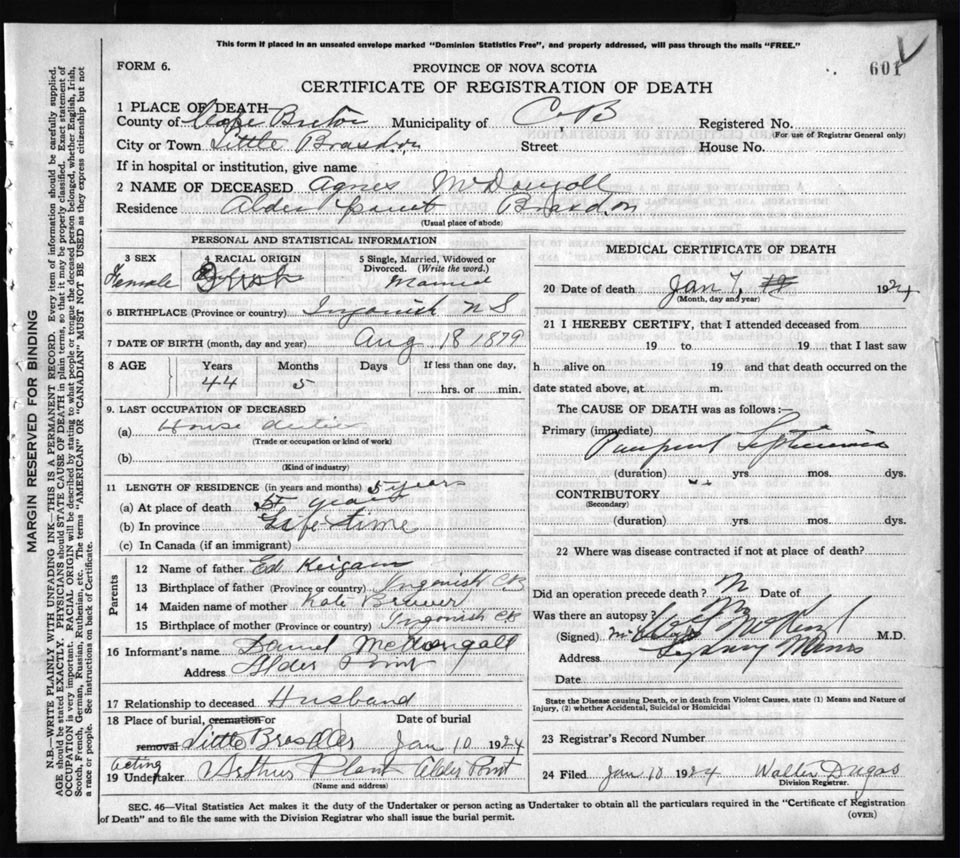 This form if placed in an unsealed envelope marked "Dominion Statistics Free", and properly addressed, will pass through the mails "FREE."
FORM 6.
PROVINCE OF NOVA SCOTIA
601
CERTIFICATE OF REGISTRATION OF DEATH
1 PLACE OF DEATH
County of Cape Breton Municipality of C.B Registered No.
(For use of Registrar General only)
City or Town Little Brasdor Street House No.
If in hospital or institution, give name
2 NAME OF DECEASED Agnes McDougall
Residence Alder point Brasdor
(Usual place of abode)
PERSONAL AND STATISTICAL INFORMATION
3 SEX 4 RACIAL ORIGIN 5 Single, Married, Widowed or Divorced. (Write the word.)
Female Irish Married
6 BIRTHPLACE (Province or country) Ingonish N S
7 DATE OF BIRTH (month, day and year) Aug 18 1879
8 AGE Years Months Days If less than one day,
44 5 hrs. or min.
9. LAST OCCUPATION OF DECEASED
(a) House duties
(Trade or occupation or kind of work)
(b)
(Kind of industry)
11 LENGTH OF RESIDENCE (in years and months) 5 years
(a) At place of death years
(b) In province Life time
(c) In Canada (if an immigrant)
Parents
12 Name of father Ed
13 Birthplace of father (Province or country) Ingonish CB
14 Maiden name of mother Kate
15 Birthplace of mother (Province or country) Ingonish CB
16 Informant's name Daniel McDougall
Address Alder Point
17 Relationship to deceased Husband
18 Place of burial, cremation or removal Date of burial
Little Brasdor Jan 10 1924
acting
19 Undertaker Arthur Plant Alder Point
(Name and address)
MEDICAL CERTIFICATE OF DEATH
20 Date of death Jan 7, 1924
(Month, day and year)
21 I HEREBY CERTIFY, that I attended deceased from
19 to 19 that I last saw
h alive on 19 and that death occurred on the
date stated above, at m.
The CAUSE OF DEATH was as follows:
Primary (immediate)
Septicemia
(duration) yrs. mos. dys.
CONTRIBUTORY
(Secondary)
(duration) yrs. mos. dys.
22 Where was disease contracted if not at place of death?
Did an operation precede death? N Date of
Was there an autopsy? No
(Signed) M.D.
Address Sydney Mines
Date
State the Disease causing Death, or in death from Violent Causes, state (1) Means and Nature of Injury, (2) whether Accidental, Suicidal or Homicidal
23 Registrar's Record Number
24 Filed Jan 10 1924 Walter Dugas
Division Registrar.
SEC. 46—Vital Statistics Act makes it the duty of the Undertaker or person acting as Undertaker to obtain all the particulars required in the "Certificate of Registration
of Death" and to file the same with the Division Registrar who shall issue the burial permit.
(OVER)
MARGIN RESERVED FOR BINDING
N.B.—WRITE PLAINLY WITH UNFADING INK—THIS IS A PERMANENT RECORD. Every item of information should be carefully supplied.
AGE should be stated EXACTLY. PHYSICIANS should STATE CAUSE OF DEATH in plain terms, so that it may be properly classified. Exact statement of
OCCUPATION is very important. RACIAL ORIGIN will be described by stating to what people or tongue the deceased person belonged, whether English, Irish,
Scotch, French, German, Russian, Ruthenian, etc. The terms "AMERICAN" OR "CANADIAN" MUST NOT BE USED as they express citizenship but not
a race or people. See instructions on back of Certificate.